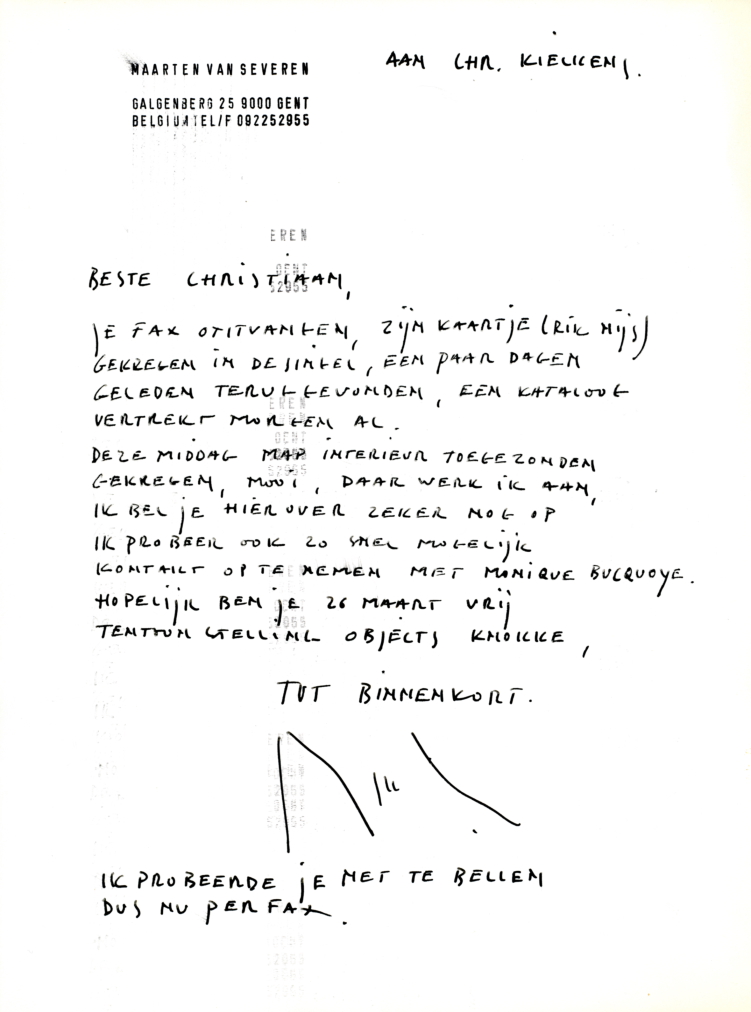 MAARTEN VAN SEVEREN
AAN CHR. KIECKENS.
GALGENBERG 25 9000 GENT
BELGIUM TEL/F 092252955
EREN
GENT
52955
BESTE CHRISTIAAN,
JE FAX ONTVANGEN, ZIJN KAARTJE (RIK NIJS)
GEKREGEN IN DE SINGEL, EEN PAAR DAGEN
GELEDEN TERUGGEVONDEN, EEN KATALOOG
VERTREKT MORGEN AL.
EREN
GENT
52955
DEZE MIDDAG MAP INTERIEUR TOEGEZONDEN
GEKREGEN, MOOI, DAAR WERK IK AAN,
IK BEL JE HIEROVER ZEKER NOG OP
IK PROBEER OOK ZO SNEL MOGELIJK
KONTAKT OP TE NEMEN MET MONIQUE BUCQUOYE.
HOPELIJK BEN JE 26 MAART VRIJ
TENTOONSTELLING OBJECTS KNOKKE,
TOT BINNENKORT.
IK PROBEERDE JE NET TE BELLEN
DUS NU PER FAX.